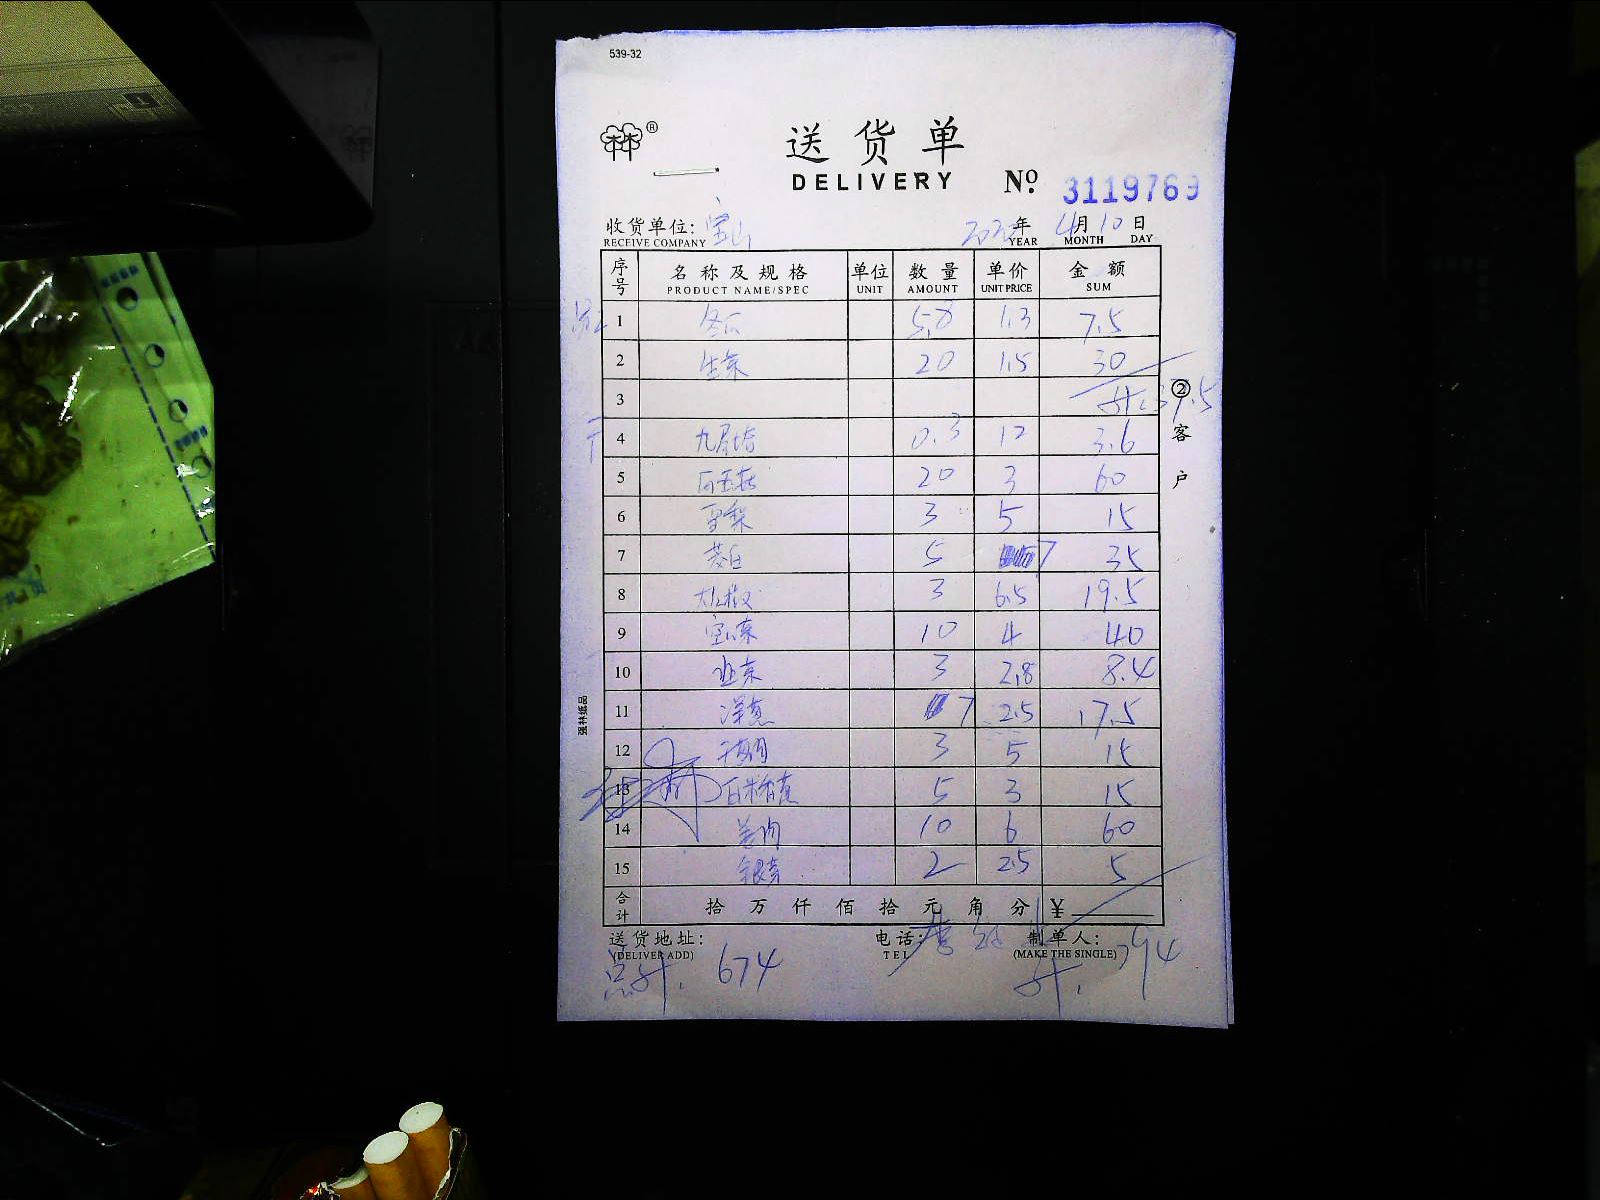 539-32
®
送货单
DELIVERY No. 3119769
收货单位: 宝山 2020年 4月 10日
RECEIVE COMPANY YEAR MONTH DAY
序号 名称及规格 单位 数量 单价 金额
PRODUCT NAME/SPEC UNIT AMOUNT UNIT PRICE SUM
1 冬瓜 5.8 1.3 7.5
2 生菜 20 1.5 30
3 计:37.5
4 0.3 12 3.6
5 20 3 60
6 雪梨 3 5 15
7 5 7 35
8 3 6.5 19.5
9 10 4 40
10 3 2.8 8.4
11 洋葱 7 2.5 17.5
12 3 5 15
13 5 3 15
14 姜肉 10 6 60
15 2 2.5 5
合计 拾 万 仟 佰 拾 元 角 分 ¥
送货地址: 电话: 制单人:
(DELIVER ADD) TEL (MAKE THE SINGLE)
总计. 674 计. 294
②客户
强林纸品